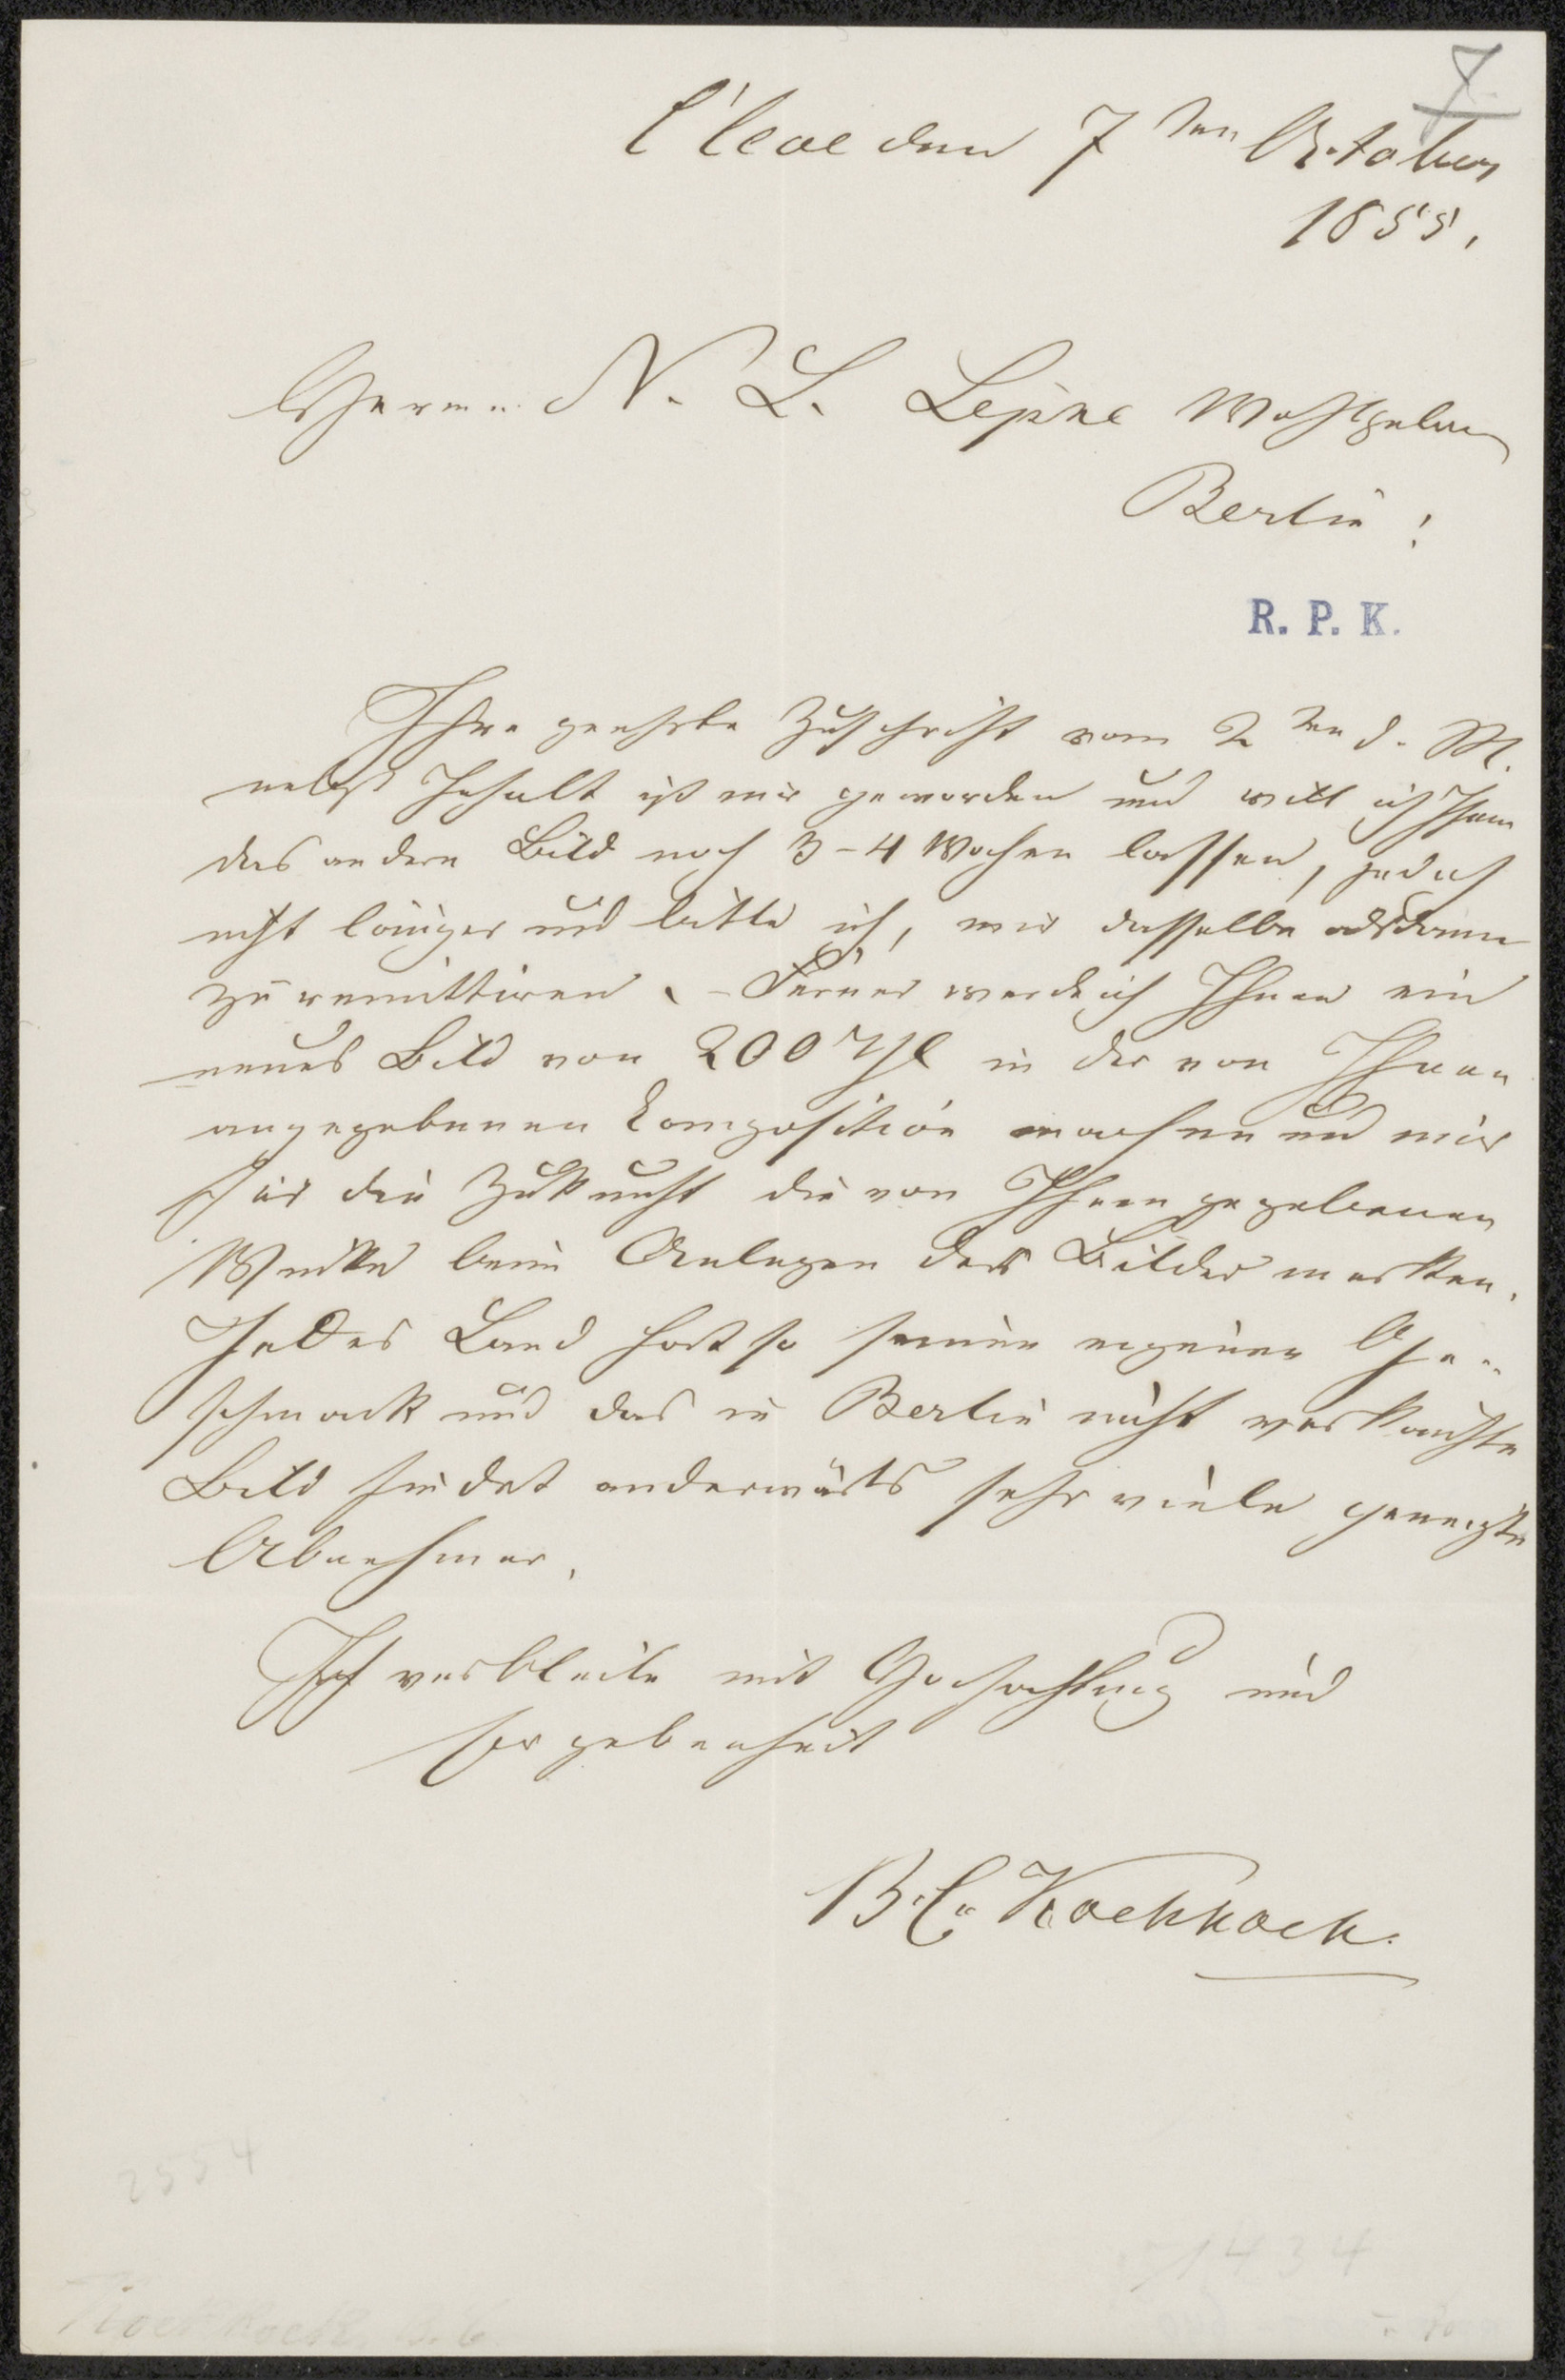 7
Cleve den 7ten October
1855.
Herrn N. L. Lepke Wohlgeboren
Berlin!
R. P. K.
Ihre geehrte Zuschrift vom 2ten d. M.
nebst Inhalt ist mir geworden und will ich Ihnen
das andere Bild noch 3-4 Wochen lassen, jedoch
nicht länger und bitte ich, mir dasselbe alsdann
zu remittiren. - Ferner werde ich Ihnen ein
neues Bild von 200 Thl in der von Ihnen
angegebenen Composition machen und mir
für die Zukunft die von Ihnen gegebenen
Winke beim Anlegen der Bilder merken.
Jedes Land hat so seinen eigenen Ge-
schmack und das in Berlin nicht verkaufte
Bild findet anderwärts sehr viele geneigte
Abnehmer.
Ich verbleibe mit Hochachtung und
Ergebenheit
B. C. Koekkoek.
2554
1434
Koekkoek, B. C.